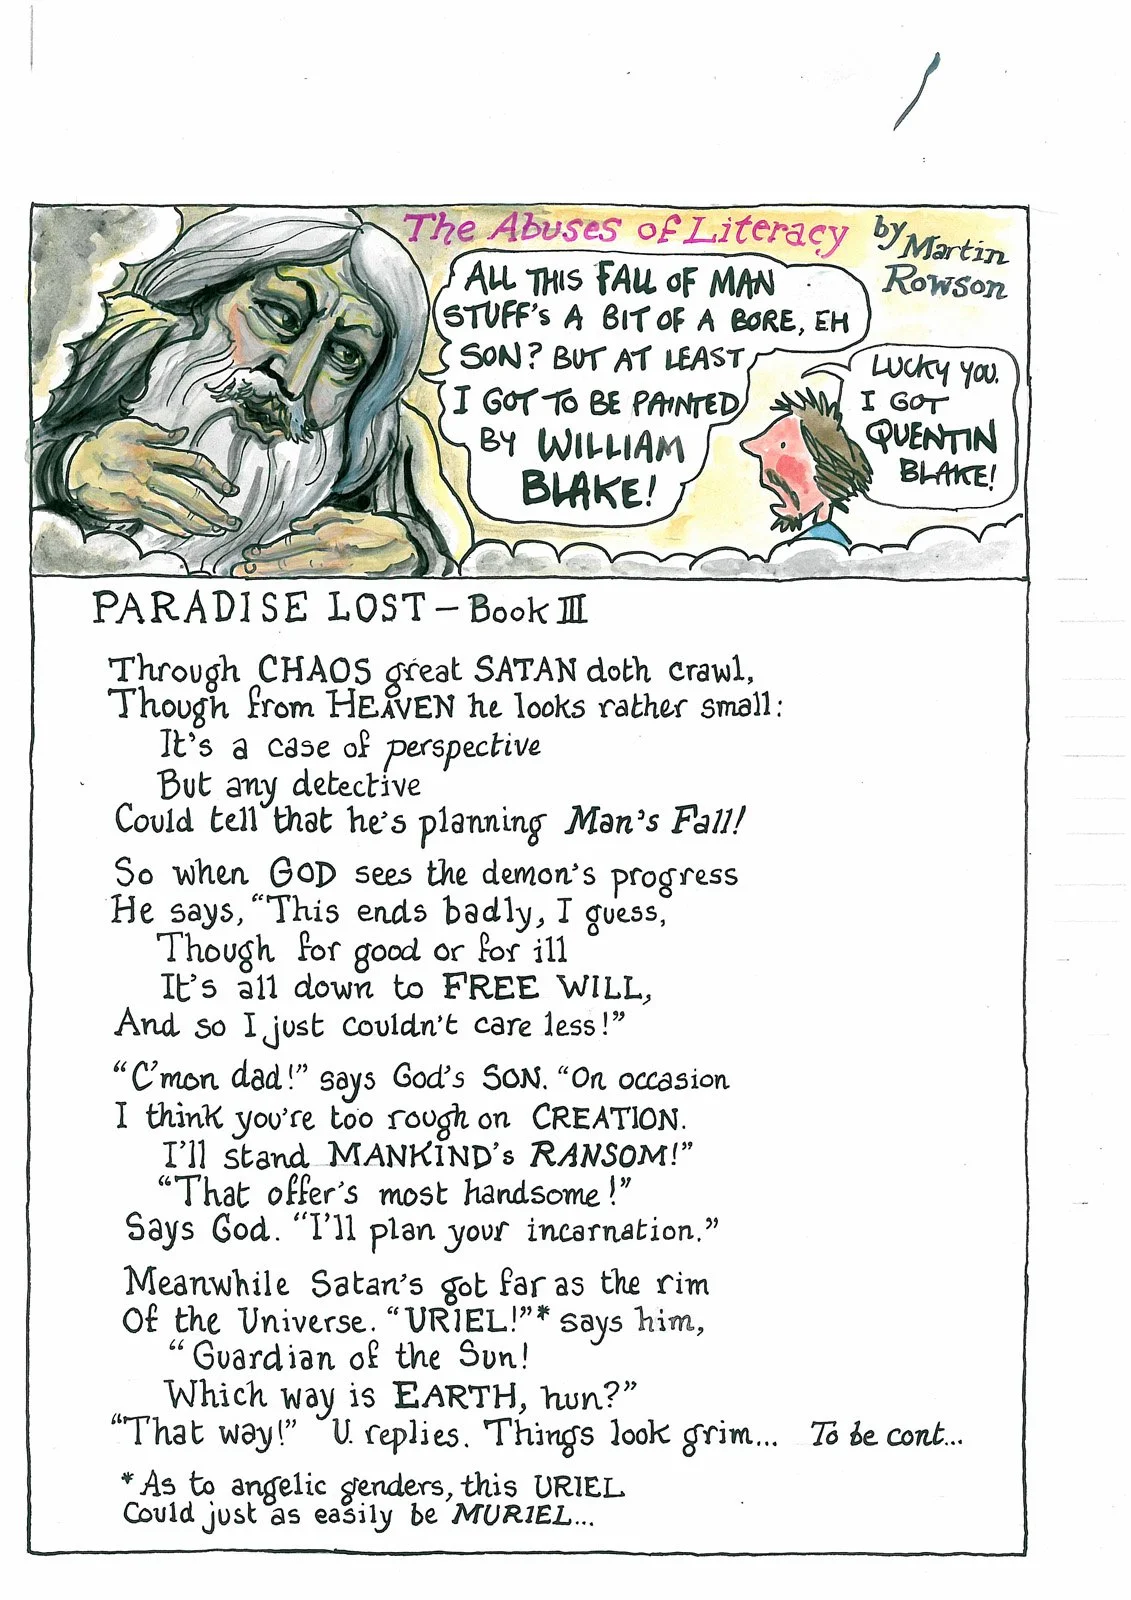 The Abuses of Literacy
by Martin
Rowson
ALL THIS FALL OF MAN
STUFF'S A BIT OF A BORE, EH
SON? BUT AT LEAST
I GOT TO BE PAINTED
BY WILLIAM
BLAKE!
LUCKY YOU.
I GOT
QUENTIN
BLAKE!
PARADISE LOST – Book III
Through CHAOS great SATAN doth crawl,
Though from HEAVEN he looks rather small:
It's a case of perspective
But any detective
Could tell that he's planning Man's Fall!
So when GOD sees the demon's progress
He says, "This ends badly, I guess,
Though for good or for ill
It's all down to FREE WILL,
And so I just couldn't care less!"
"C'mon dad!" says God's SON. "On occasion
I think you're too rough on CREATION.
I'll stand MANKIND's RANSOM!"
"That offer's most handsome!"
Says God. "I'll plan your incarnation."
Meanwhile Satan's got far as the rim
Of the Universe. "URIEL!"* says him,
"Guardian of the Sun!
Which way is EARTH, hun?"
"That way!" U. replies. Things look grim... To be cont...
*As to angelic genders, this URIEL
Could just as easily be MURIEL...